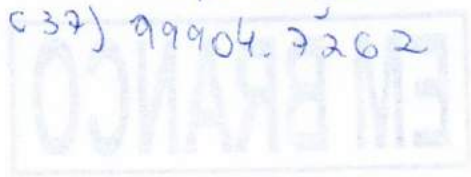 (37) 99904.7262
EM BRANCO